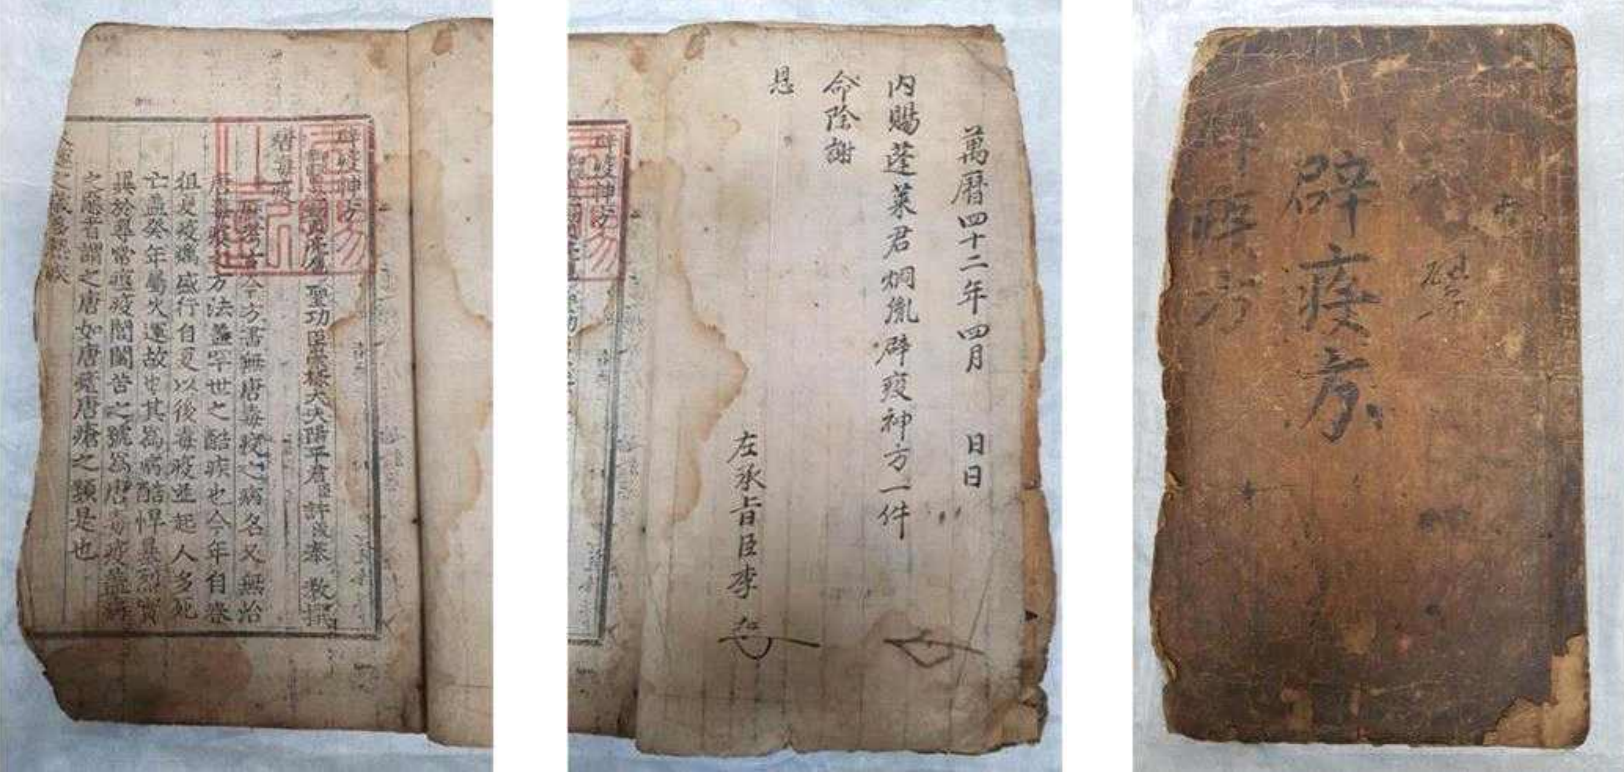 辟疫神方
聖功臣崇祿大夫陽平君臣許浚奉 教撰
唐毒疫
歷考古今方書無唐毒疫之病名又無治
唐毒疫之方法盖罕世之酷疾也今年自春
徂夏疫癘盛行自夏以後毒疫並起人多死
亡盖癸年屬火運故也其爲病酷悍暴烈實
異於尋常瘟疫閭閻皆之號爲唐毒疫盖病
之惡者謂之唐如唐瘧唐瘡之類是也
萬曆四十二年四月 日日
内賜蓬萊君炯胤辟疫神方一件
命除謝
恩
左承旨臣李
辟疫神方
辟疫方
辟疫方